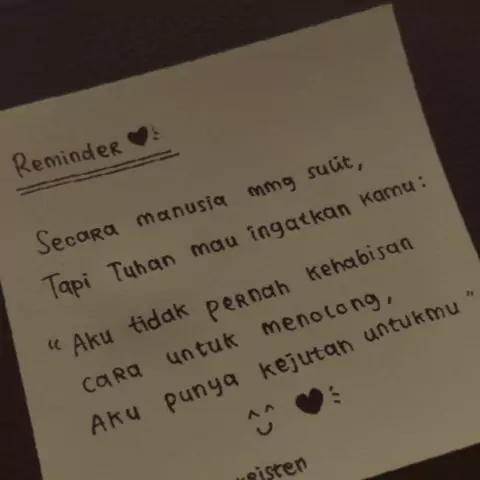 Reminder
Secara manusia mmg sulit,
Tapi Tuhan mau ingatkan kamu:
"Aku tidak pernah kehabisan
cara untuk menolong,
Aku punya kejutan untukmu"